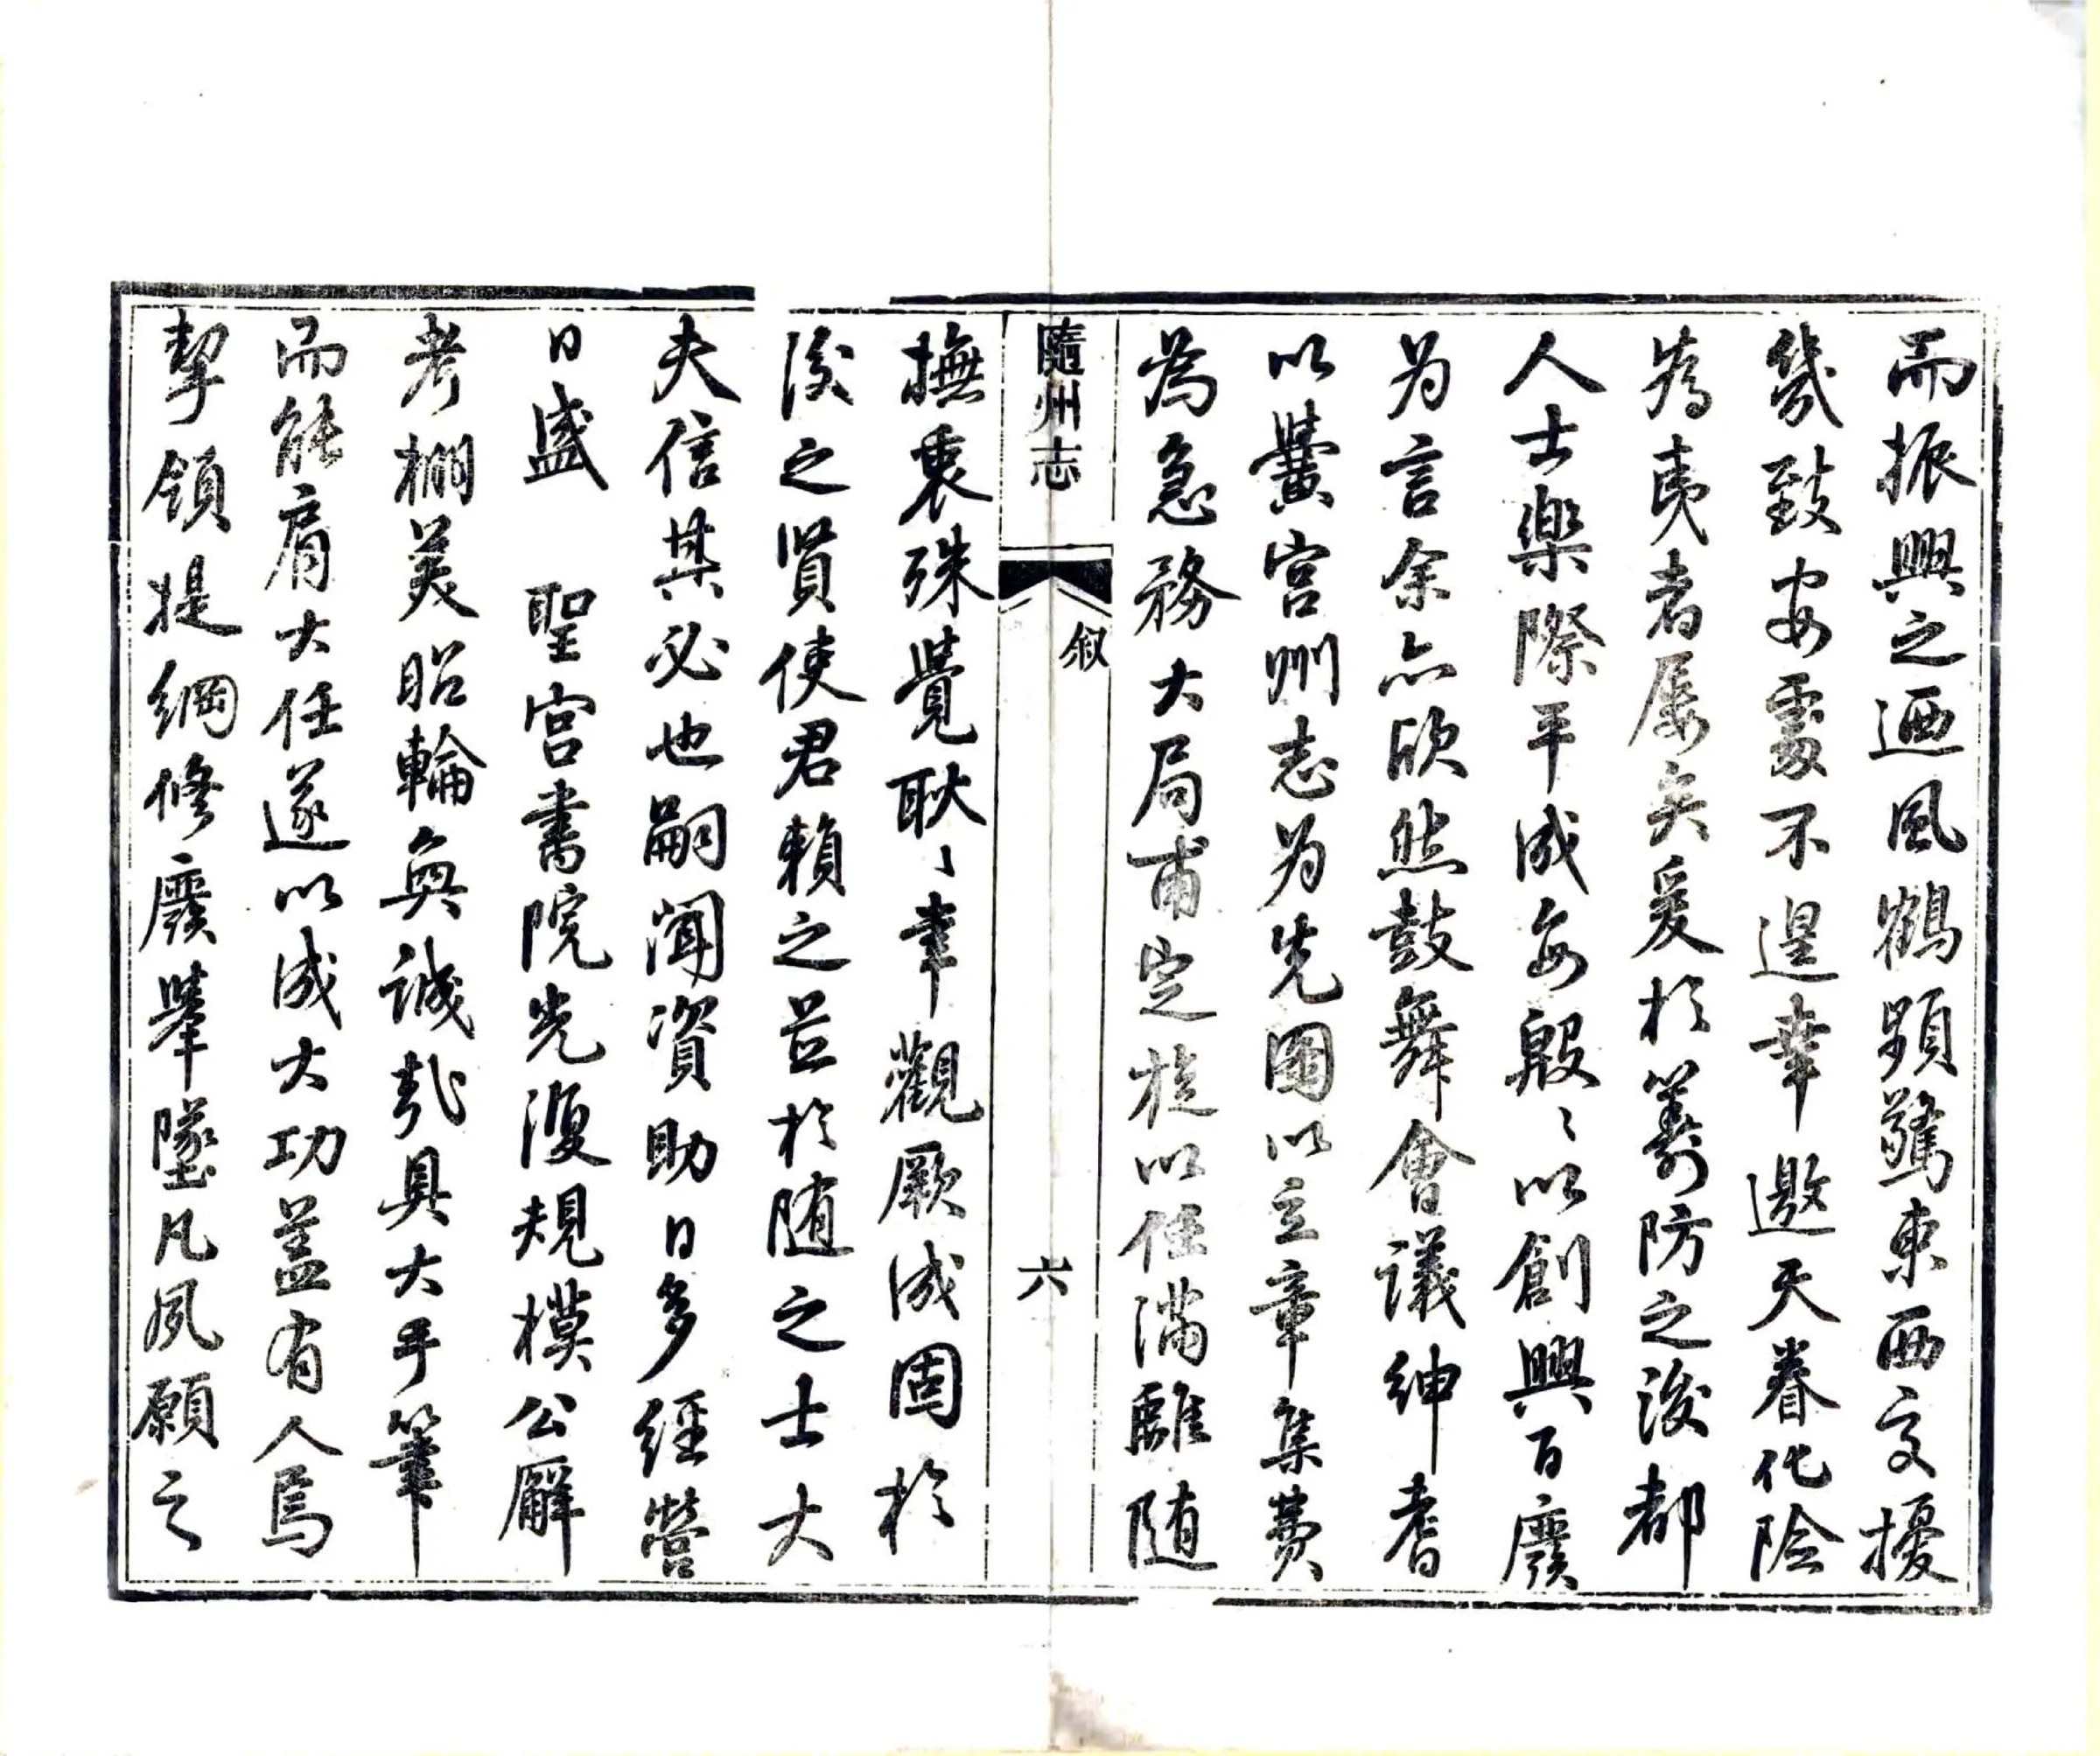 而振興之迺風鶴頻驚東西交擾
幾致安處不遑幸邀天眷化險
為夷者屢矣爰於籌防之後都
人士樂際平成每殷〻以創興百廢
為言余亦欣然鼓舞會議紳耆
以黌宮州志為先圖以立章集費
為急務大局甫定旋以任滿離随
隨州志
叙
六
撫衷殊覺耿〻幸觀厥成固於
後之賢使君賴之並於随之士大
夫信其必也嗣聞資助日多經營
日盛 聖宮書院先復規模公廨
考棚美昭輪奐誠哉具大手筆
而能肩大任遂以成大功蓋有人焉
挈領提綱修廢舉墜凡夙願之